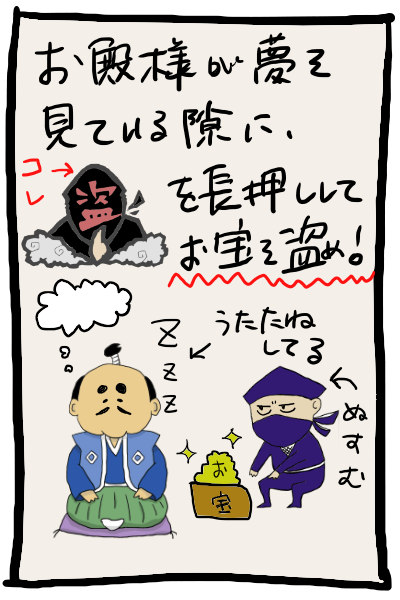 お殿様が夢を
見ている隙に、
コレ→
盗
を長押しして
お宝を盗め！
うたたね
してる
Z
Z
Z
ぬすむ
お
宝